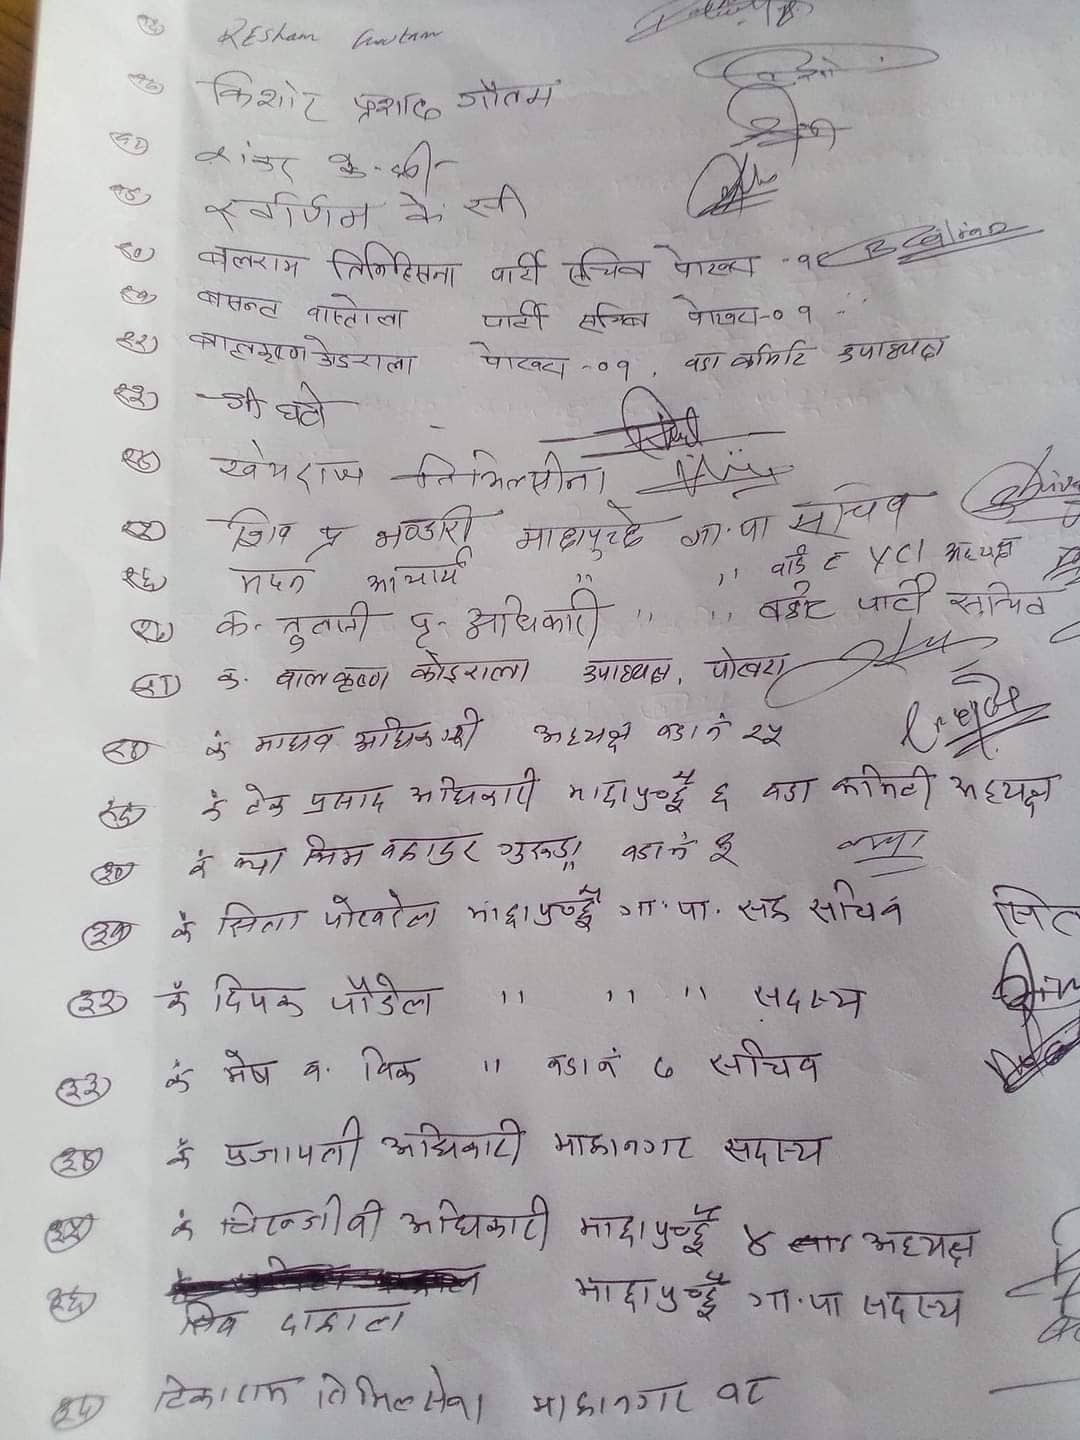 १६ Resham Gautam
१७ किशोर प्रशाद गौतम
१८ शंकर के.सी.
१९ स्वर्णिम के सी
२० बलराम तिमिल्सिना पार्टी सचिव पोखरा -१८
२१ बसन्त वास्तोला पार्टी सचिव पोखरा-०१
२२ बालकृष्ण कोइराला पोखरा -०१, वडा कमिटि उपाध्यक्ष
२३ जी घले
२४ खेमराज तिमिल्सीना
२५ शिव प्र भण्डारी माछापुच्छ्रे गा.पा सचिव
२६ मदन आचार्य " " वार्ड ८ YCL अध्यक्ष
२७ क. तुलसी प्र. अधिकारी " " पार्टी सचिव
२८ क. बालकृष्ण कोइराला उपाध्यक्ष, पोखरा
क माधव अधिकारी अध्यक्ष वडा नं २५
२९ क टेक प्रसाद अधिकारी माछापुच्छ्रे ६ वडा कमिटी अध्यक्ष
३० क क्या भिम बहादुर गुरुङ वडा नं ३
३१ क सिता पोखरेल माछापुच्छ्रे गा.पा. सह सचिव
३२ क दिपक पौडेल " " " सदस्य
३३ क मेष ब. विक " वडा नं ७ सचिव
३४ क प्रजापती अधिकारी माहानगर सदस्य
३५ क चिरन्जीवी अधिकारी माछापुच्छ्रे ४ अध्यक्ष
३६ माछापुच्छ्रे गा.पा सदस्य
शिव दाहाल
३७ टिकाराम तिमिल्सेना माहानगर १८